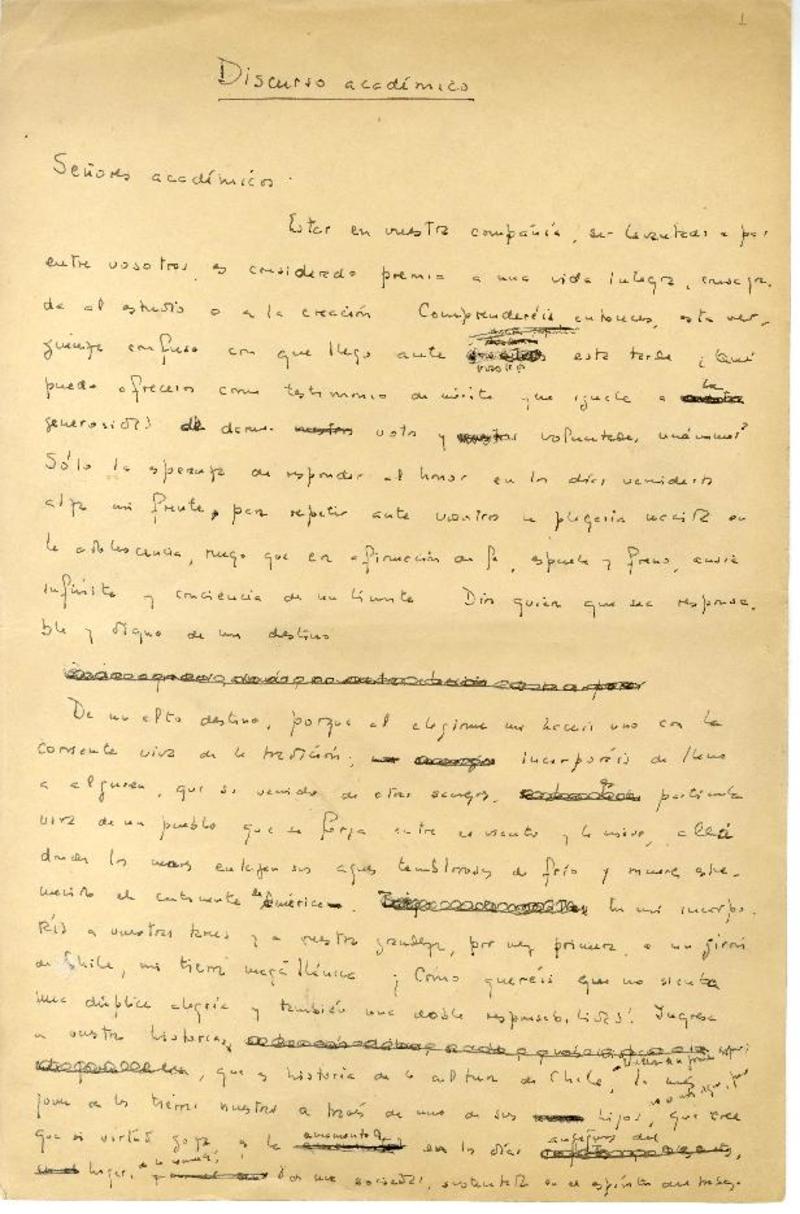 1
Discurso académico
Señores académicos.
Estar en vuestra compañía, ser levantado a por
entre vosotros, es considerado premio a una vida íntegra, consagra-
da al estudio o a la creación Comprenderéis entonces, esta ver-
güenza confusa con que llego ante vosotros esta tarde ¿Qué
puedo ofreceros como testimonio de mérito que iguale a la
generosidad de darme votos y voluntades unánimes?
Sólo la esperanza de responder al honor en los días venideros
alza mi frente, para repetir ante vosotros la plegaria nacida en
la adolescencia, ruego que es afirmación de fe, espuela y freno, ansia
infinita y conciencia de un límite Dios quiera que sea responsa-
ble y digno de un destino
De un alto destino, porque al elegirme me hacéis uno con la
corriente viva de la tradición; incorporáis de lleno
a alguien, que es venido de otras sangres, partícula
viva de un pueblo que se forja entre el viento y la nieve, allá
donde los mares entrelazan sus aguas temblorosas de frío y muere estre-
mecido el continente de América. En mí incorpo-
ráis a vuestras tareas y a vuestra grandeza, por vez primera, a un girón
de Chile, mi tierra magallánica ¡Cómo queréis que no sienta
una dúplice alegría y también una doble responsabilidad! Ingresa
a vuestra historia,
que es historia de la cultura de Chile, la más
joven de las tierras nuestras a través de uno de sus hijos, que cree
que si virtud goza, es la en los días
hogar, de una sociedad, sustentada en el espíritu del trabajo